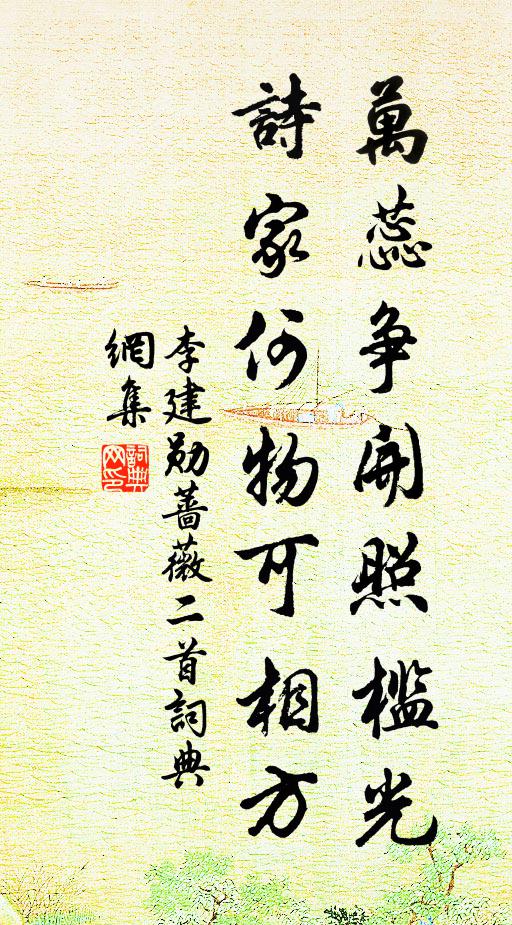 萬蕊爭開照檻光
詩家何物可相方
李建勛薔薇二首詞典
網集
詞典
网印